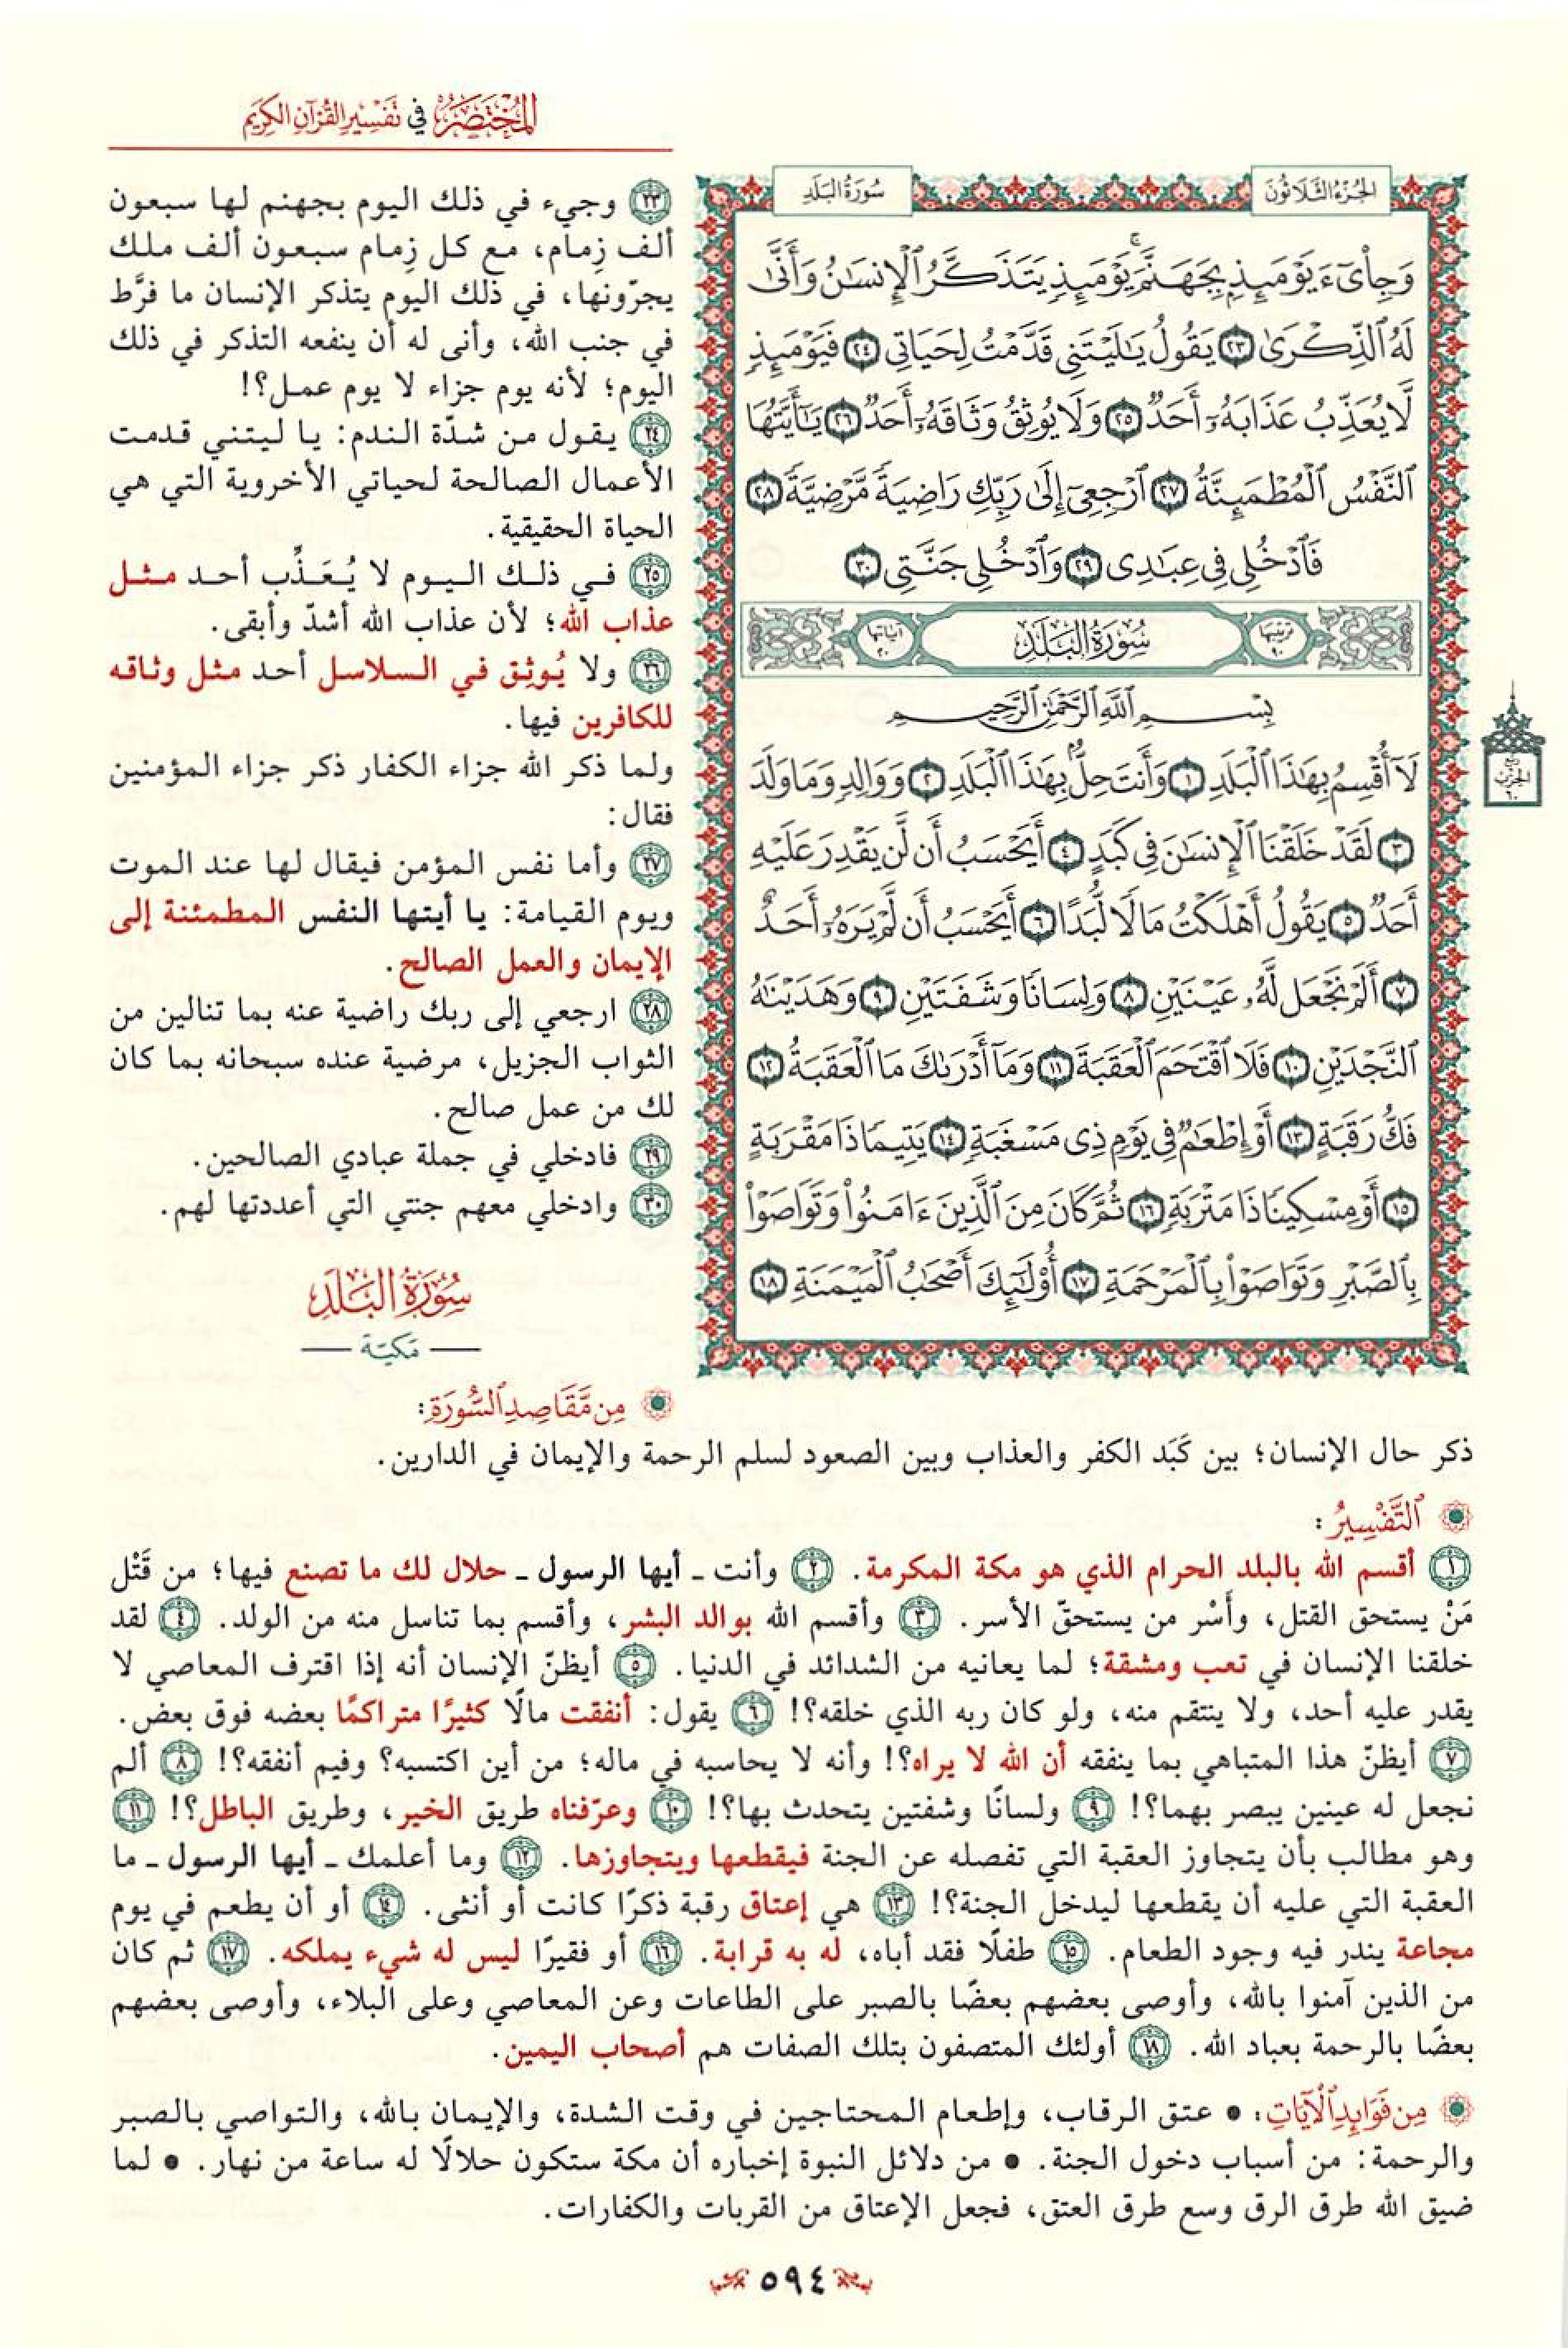 المختصر في تفسير القرآن الكريم
الجزء الثلاثون
سورة البلد
وَجِاْىٓءَ يَوْمَئِذِۭ بِجَهَنَّمَۚ يَوْمَئِذٖ يَتَذَكَّرُ ٱلۡإِنسَٰنُ وَأَنَّىٰ
لَهُ ٱلذِّكۡرَىٰ ٢٣ يَقُولُ يَٰلَيۡتَنِي قَدَّمۡتُ لِحَيَاتِي ٢٤ فَيَوۡمَئِذٖ
لَّا يُعَذِّبُ عَذَابَهُۥٓ أَحَدٞ ٢٥ وَلَا يُوثِقُ وَثَاقَهُۥٓ أَحَدٞ ٢٦ يَٰٓأَيَّتُهَا
ٱلنَّفۡسُ ٱلۡمُطۡمَئِنَّةُ ٢٧ ٱرۡجِعِيٓ إِلَىٰ رَبِّكِ رَاضِيَةٗ مَّرۡضِيَّةٗ ٢٨
فَٱدۡخُلِي فِي عِبَٰدِي ٢٩ وَٱدۡخُلِي جَنَّتِي ٣٠
ترتيبها ٩٠
سورة البلد
آياتها ٢٠
بِسۡمِ ٱللَّهِ ٱلرَّحۡمَٰنِ ٱلرَّحِيمِ
لَآ أُقۡسِمُ بِهَٰذَا ٱلۡبَلَدِ ١ وَأَنتَ حِلُّۢ بِهَٰذَا ٱلۡبَلَدِ ٢ وَوَالِدٖ وَمَا وَلَدَ
٣ لَقَدۡ خَلَقۡنَا ٱلۡإِنسَٰنَ فِي كَبَدٍ ٤ أَيَحۡسَبُ أَن لَّن يَقۡدِرَ عَلَيۡهِ
أَحَدٞ ٥ يَقُولُ أَهۡلَكۡتُ مَالٗا لُّبَدًا ٦ أَيَحۡسَبُ أَن لَّمۡ يَرَهُۥٓ أَحَدٌ
٧ أَلَمۡ نَجۡعَل لَّهُۥ عَيۡنَيۡنِ ٨ وَلِسَانٗا وَشَفَتَيۡنِ ٩ وَهَدَيۡنَٰهُ
ٱلنَّجۡدَيۡنِ ١٠ فَلَا ٱقۡتَحَمَ ٱلۡعَقَبَةَ ١١ وَمَآ أَدۡرَىٰكَ مَا ٱلۡعَقَبَةُ ١٢
فَكُّ رَقَبَةٍ ١٣ أَوۡ إِطۡعَٰمٞ فِي يَوۡمٖ ذِي مَسۡغَبَةٖ ١٤ يَتِيمٗا ذَا مَقۡرَبَةٍ
١٥ أَوۡ مِسۡكِينٗا ذَا مَتۡرَبَةٖ ١٦ ثُمَّ كَانَ مِنَ ٱلَّذِينَ ءَامَنُواْ وَتَوَاصَوۡاْ
بِٱلصَّبۡرِ وَتَوَاصَوۡاْ بِٱلۡمَرۡحَمَةِ ١٧ أُوْلَٰٓئِكَ أَصۡحَٰبُ ٱلۡمَيۡمَنَةِ ١٨
ربع
الحزب
٦٠
٢٣ وجيء في ذلك اليوم بجهنم لها سبعون
ألف زِمام، مع كل زِمام سبعون ألف ملك
يجرّونها، في ذلك اليوم يتذكر الإنسان ما فرَّط
في جنب الله، وأنى له أن ينفعه التذكر في ذلك
اليوم؛ لأنه يوم جزاء لا يوم عمل؟!
٢٤ يقول من شدّة الندم: يا ليتني قدمت
الأعمال الصالحة لحياتي الأخروية التي هي
الحياة الحقيقية.
٢٥ في ذلك اليوم لا يُعَذِّب أحد مثل
عذاب الله؛ لأن عذاب الله أشدّ وأبقى.
٢٦ ولا يُوثِق في السلاسل أحد مثل وثاقه
للكافرين فيها.
ولما ذكر الله جزاء الكفار ذكر جزاء المؤمنين
فقال:
٢٧ وأما نفس المؤمن فيقال لها عند الموت
ويوم القيامة: يا أيتها النفس المطمئنة إلى
الإيمان والعمل الصالح.
٢٨ ارجعي إلى ربك راضية عنه بما تنالين من
الثواب الجزيل، مرضية عنده سبحانه بما كان
لك من عمل صالح.
٢٩ فادخلي في جملة عبادي الصالحين.
٣٠ وادخلي معهم جنتي التي أعددتها لهم.
سورة البلد
— مكية —
من مقاصد السورة:
ذكر حال الإنسان؛ بين كَبَد الكفر والعذاب وبين الصعود لسلم الرحمة والإيمان في الدارين.
التفسير:
١ أقسم الله بالبلد الحرام الذي هو مكة المكرمة. ٢ وأنت ـ أيها الرسول ـ حلال لك ما تصنع فيها؛ من قَتْل
مَنْ يستحق القتل، وأَسْر من يستحقّ الأسر. ٣ وأقسم الله بوالد البشر، وأقسم بما تناسل منه من الولد. ٤ لقد
خلقنا الإنسان في تعب ومشقة؛ لما يعانيه من الشدائد في الدنيا. ٥ أيظنّ الإنسان أنه إذا اقترف المعاصي لا
يقدر عليه أحد، ولا ينتقم منه، ولو كان ربه الذي خلقه؟! ٦ يقول: أنفقت مالًا كثيرًا متراكمًا بعضه فوق بعض.
٧ أيظنّ هذا المتباهي بما ينفقه أن الله لا يراه؟! وأنه لا يحاسبه في ماله؛ من أين اكتسبه؟ وفيم أنفقه؟! ٨ ألم
نجعل له عينين يبصر بهما؟! ٩ ولسانًا وشفتين يتحدث بها؟! ١٠ وعرّفناه طريق الخير، وطريق الباطل؟! ١١
وهو مطالب بأن يتجاوز العقبة التي تفصله عن الجنة فيقطعها ويتجاوزها. ١٢ وما أعلمك ـ أيها الرسول ـ ما
العقبة التي عليه أن يقطعها ليدخل الجنة؟! ١٣ هي إعتاق رقبة ذكرًا كانت أو أنثى. ١٤ أو أن يطعم في يوم
مجاعة يندر فيه وجود الطعام. ١٥ طفلًا فقد أباه، له به قرابة. ١٦ أو فقيرًا ليس له شيء يملكه. ١٧ ثم كان
من الذين آمنوا بالله، وأوصى بعضهم بعضًا بالصبر على الطاعات وعن المعاصي وعلى البلاء، وأوصى بعضهم
بعضًا بالرحمة بعباد الله. ١٨ أولئك المتصفون بتلك الصفات هم أصحاب اليمين.
من فوائد الآيات: • عتق الرقاب، وإطعام المحتاجين في وقت الشدة، والإيمان بالله، والتواصي بالصبر
والرحمة: من أسباب دخول الجنة. • من دلائل النبوة إخباره أن مكة ستكون حلالًا له ساعة من نهار. • لما
ضيق الله طرق الرق وسع طرق العتق، فجعل الإعتاق من القربات والكفارات.
٥٩٤